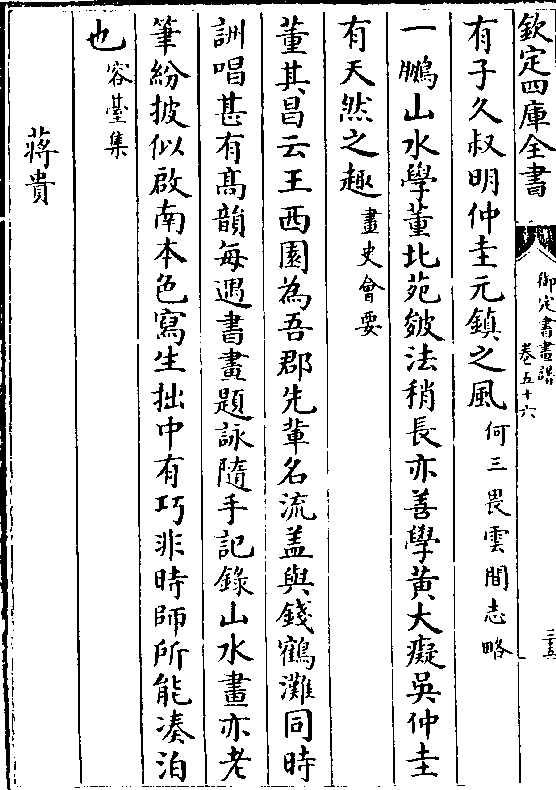 欽定四庫全書
御定書畫譜
卷五十六
三五
有子久叔明仲圭元鎮之風何三畏雲間志略
一鵬山水學董北苑皴法稍長亦善學黄大癡吳仲圭
有天然之趣畫史會要
董其昌云王西園為吾郡先輩名流盖與錢鶴灘同時
詶唱甚有髙韻每遇書畫題詠隨手記錄山水畫亦老
筆紛披似啟南本色寫生拙中有巧非時師所能凑泊
也容臺集
蔣貴